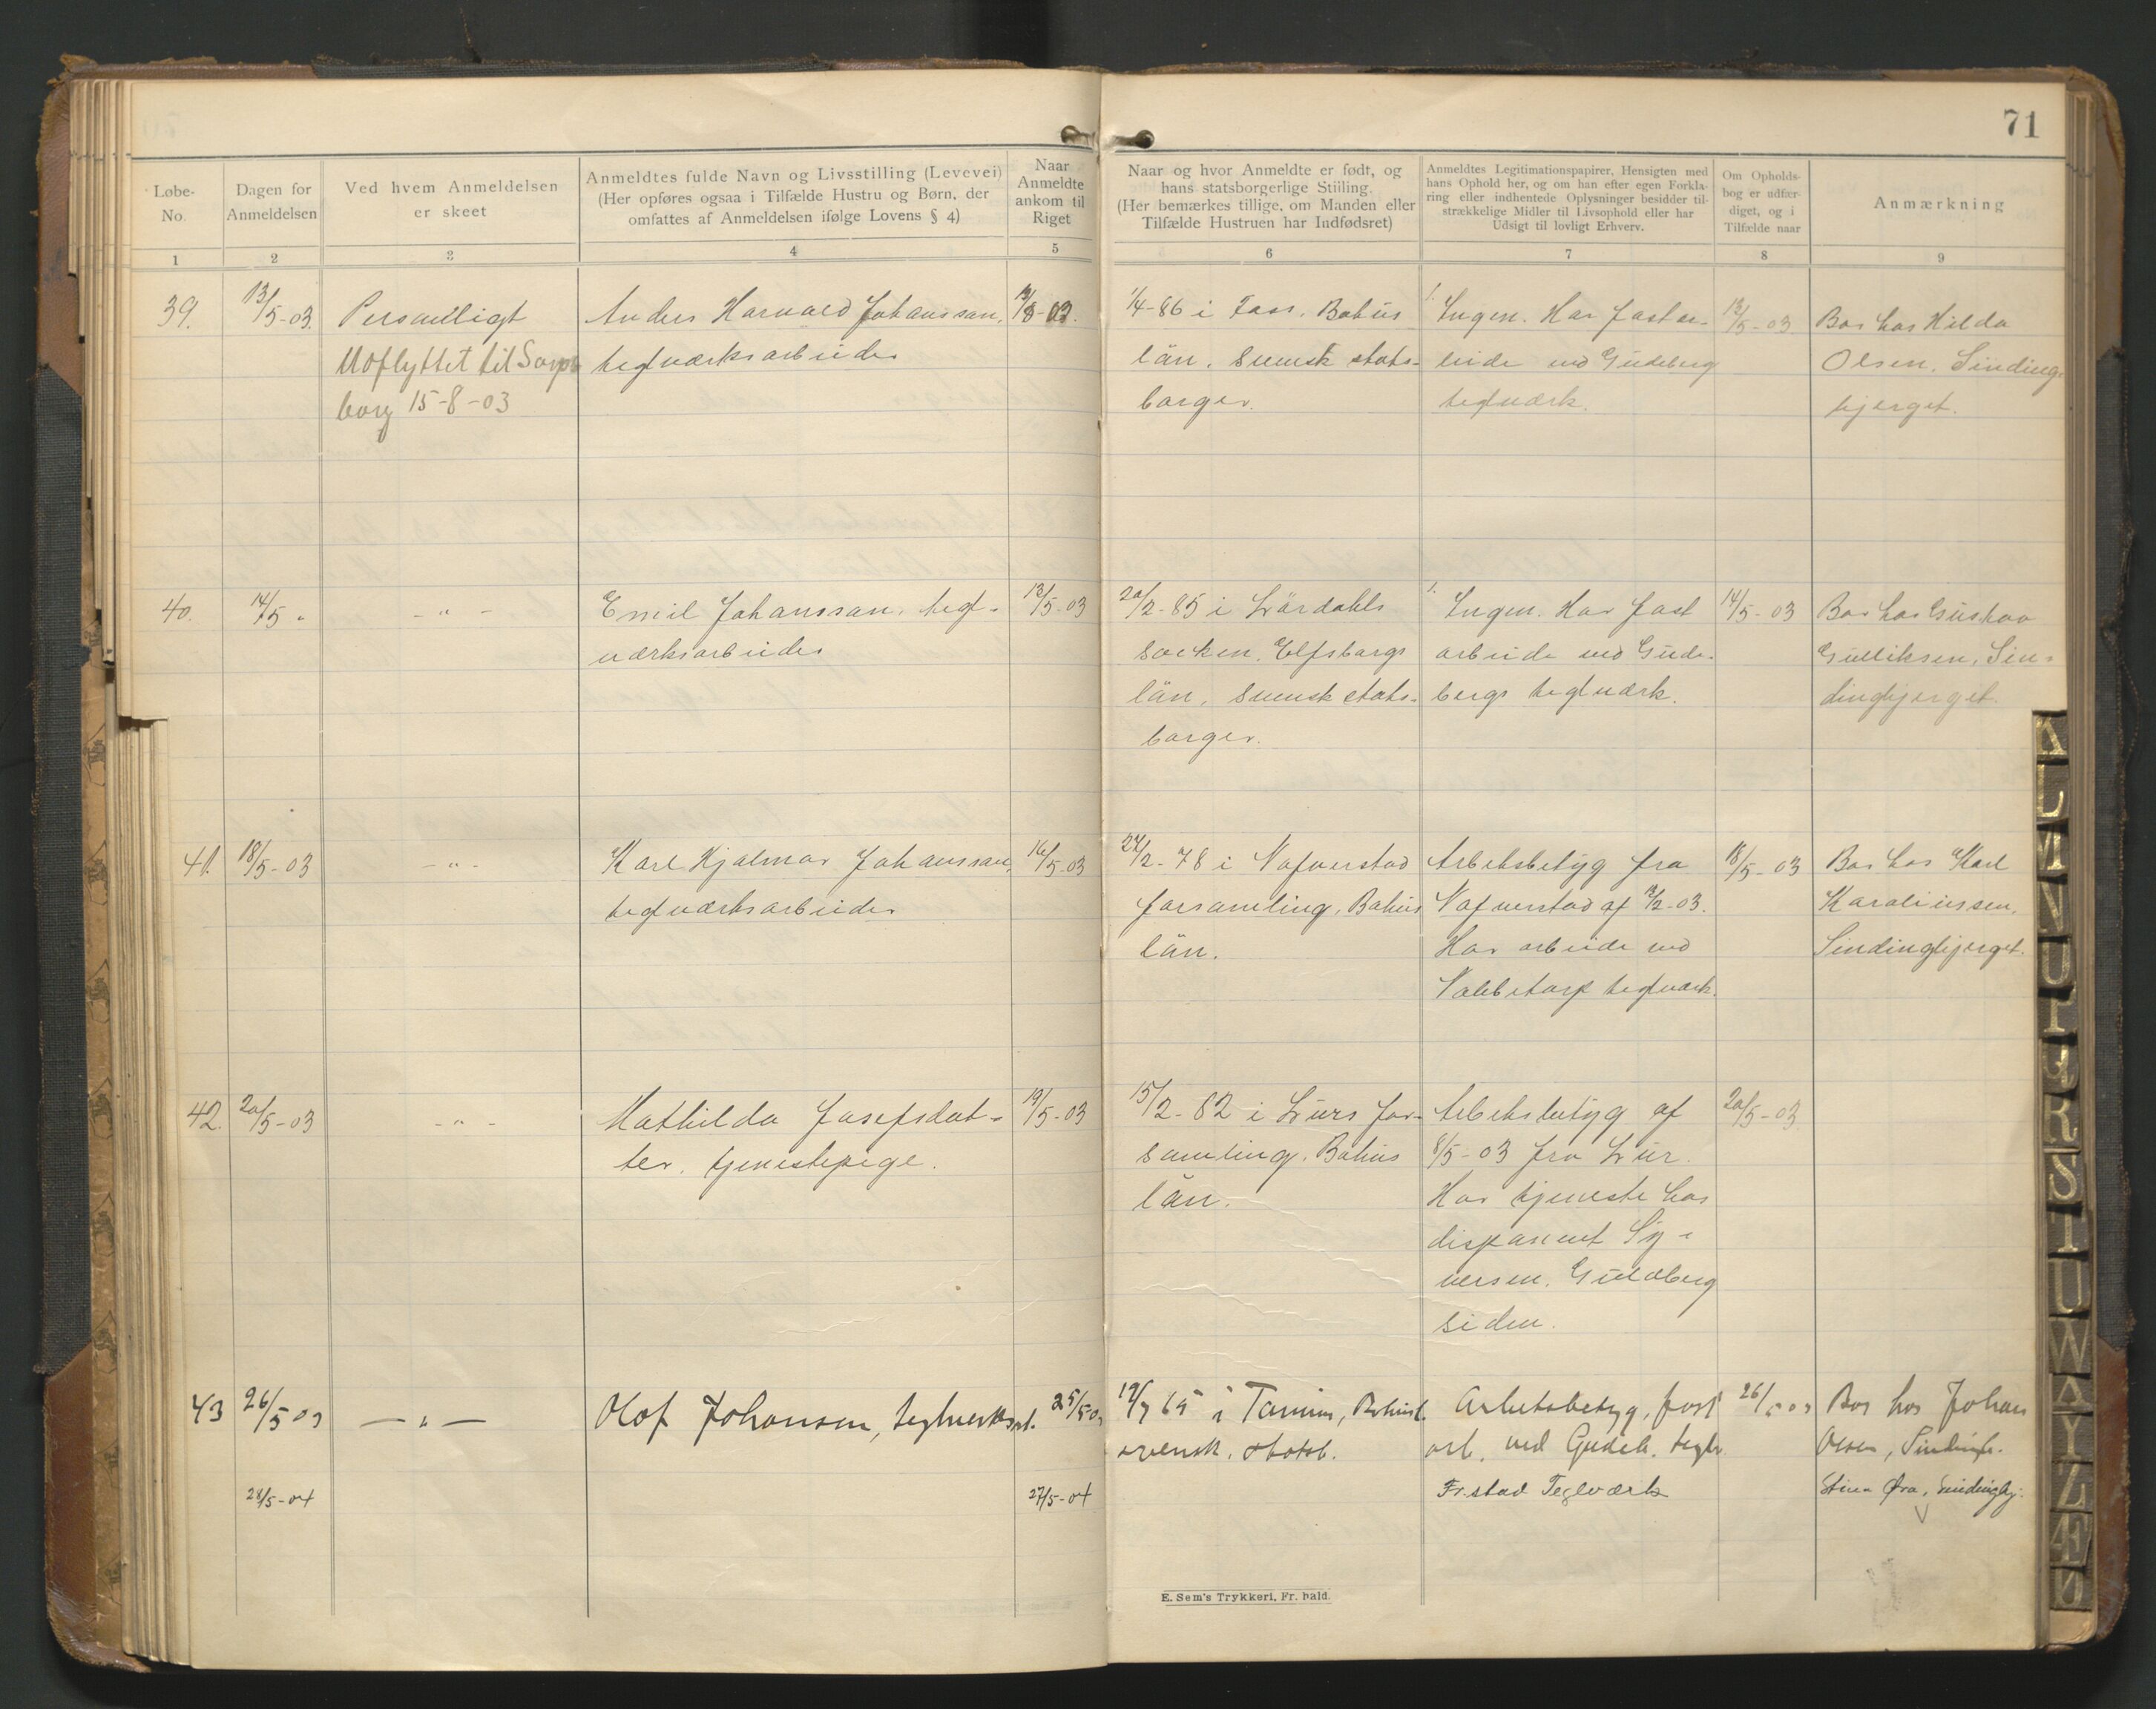 71
Løbe-
No.
Dagen for
Anmeldelsen
Ved hvem Anmeldelsen
er skeet
Anmeldtes fulde Navn og Livsstilling (Levevei)
(Her opføres ogsaa i Tilfælde Hustru og Børn, der
omfattes af Anmeldelsen ifølge Lovens § 4)
Naar
Anmeldte
ankom til
Riget
Naar og hvor Anmeldte er født, og
hans statsborgerlige Stilling.
(Her bemærkes tillige, om Manden eller
Tilfælde Hustruen har Indfødsret)
Anmeldtes Legitimationspapirer, Hensigten med
hans Ophold her, og om han efter egen Forkla-
ring eller indhentede Oplysninger besidder til-
strækkelige Midler til Livsophold eller har
Udsigt til lovligt Erhverv.
Om Opholds-
bog er udfær-
diget, og i
Tilfælde naar
Anmærkning
1
2
3
4
5
6
7
8
9
39.
13/5-03.
Personligt
Uoflyttet til Sarps
borg 15-8-03
Anders Harvald Johanssan,
teglværksarbeider
1/4-86 i Foss, Bahus
län. Svensk stats-
borger.
Ingen. Har fast ar-
beide ved Gudeberg
teglværk.
13/5-03.
Bor hos Hilda
Olsen, Sinding-
bjerget.
40.
14/5 "
- " -
Emil Johanssan, tegl-
værksarbeider
13/5-03
20/2-85 i Lärdahls
Socken, Elfsborgs
län. Svensk stats-
borger.
Ingen. Har fast
arbeide ved Gude-
bergs teglværk.
14/5-03
Bor hos Gustav
Gulliksen, Sin-
dingbjerget.
41.
18/5-03
- " -
Karl Hjalmar Johanssan,
teglværksarbeider
16/5-03
22/2-78 i Nafverstad
forsamling, Bahus
län.
Arbetsbetyg fra
Nafverstad af /2-03.
Har arbeide ved
Nabbetorp teglværk.
18/5-03
Bor hos Karl
Karoliussen,
Sindingbjerget.
42.
20/5-03
- " -
Mathilda Josefsdat-
ter, tjenestepige.
19/5-03
15/2-82 i Lurs for-
samling, Bahus
län.
Arbetsbetyg af
8/5-03 fra Lur.
Har tjeneste hos
disponent Sy-
versen, Guldberg
siden.
20/5-03.
43
26/5 03
— " —
Olof Johansen, teglverksarb.
25/5 03
65 i Tanum, Bohusl.
svensk. statsb.
Arbetsbetyg, fast
arb. ved Gudeb. teglv.
26/5 03
Bor hos Johan
Olsen, Sindingb.
28/5-04
27/5-04
Fr.stad Teglværk
Stina Øra, Sindingbj.
E. Sem's Trykkeri, Fr. hald.
A
L
M
N
O
P
Q
R
S
T
U
W
X
Y
Z
Æ
Ø